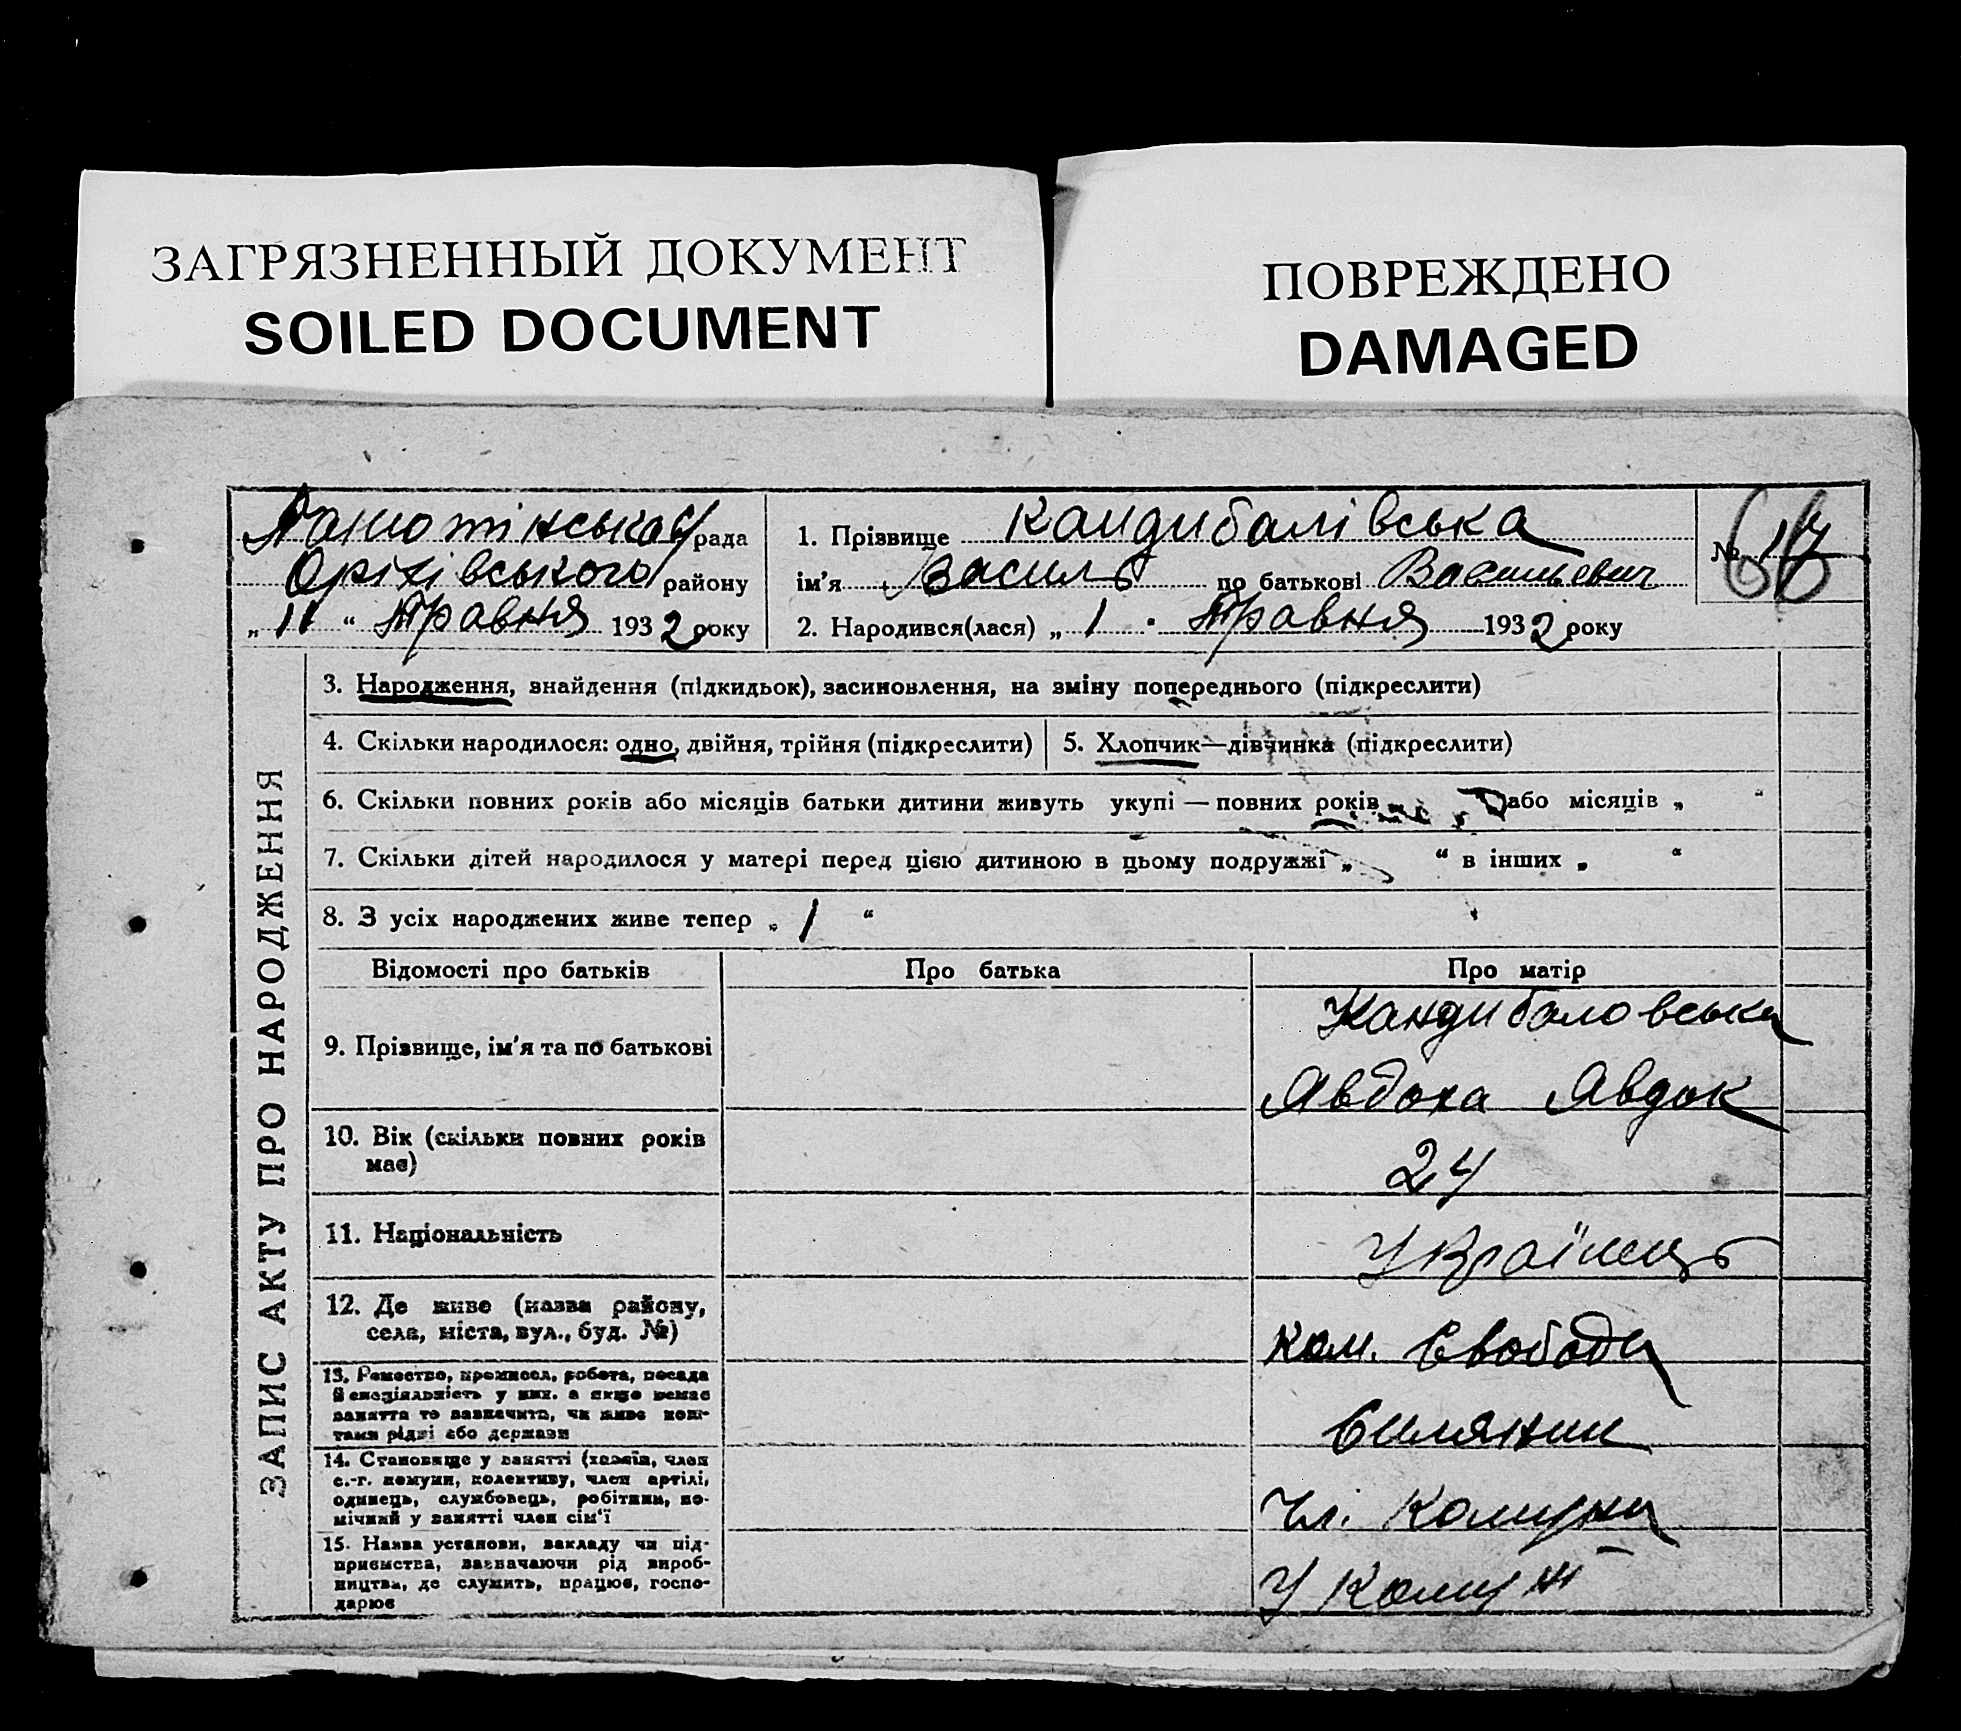 ЗАГРЯЗНЕННЫЙ ДОКУМЕНТ
SOILED DOCUMENT
ПОВРЕЖДЕНО
DAMAGED
рада
Оріхівського району
„ 11 “ Травня 1932 року
1. Прізвище Кандибалівська
ім'я Василь по батькові Васильевич
2. Народився(лася) „ 1 . Травня 1932 року
№
ЗАПИС АКТУ ПРО НАРОДЖЕННЯ
3. Народження, внайдення (підкидьок), засиновлення, на зміну попереднього (підкреслити)
4. Скільки народилося: одно, двійня, трійня (підкреслити)
5. Хлопчик—дівчинка (підкреслити)
6. Скільки повних років або місяців батьки дитини живуть укупі — повних років або місяців „ “
7. Скільки дітей народилося у матері перед цією дитиною в цьому подружжі „ “ в інших „ “
8. З усіх народжених живе тепер „ 1 “
Відомості про батьків
Про батька
Про матір
9. Прізвище, ім'я та по батькові
Кандибаловська
Явдоха Явдок
10. Вік (скільки повних років
має)
24
11. Національність
Українець
12. Де живе (назва району,
села, міста, вул., буд. №)
Ком. Свобода
13. Ремество, промисел, робота, посада
й спеціяльність у них. а якщо немає
заняття то зазначить, чи живе кош-
тами рідні або держави
Силянин
14. Становище у занятті (хазяїн, член
с.-г. комуни, колективу, член артілі,
одинець, службовець, робітник, по-
мічний у занятті член сім'ї
Чл. Комуни
15. Назва установи, закладу чи під-
приємства, зазначаючи рід вироб-
ництва, де служить, працює, госпо-
дарює
У Комун